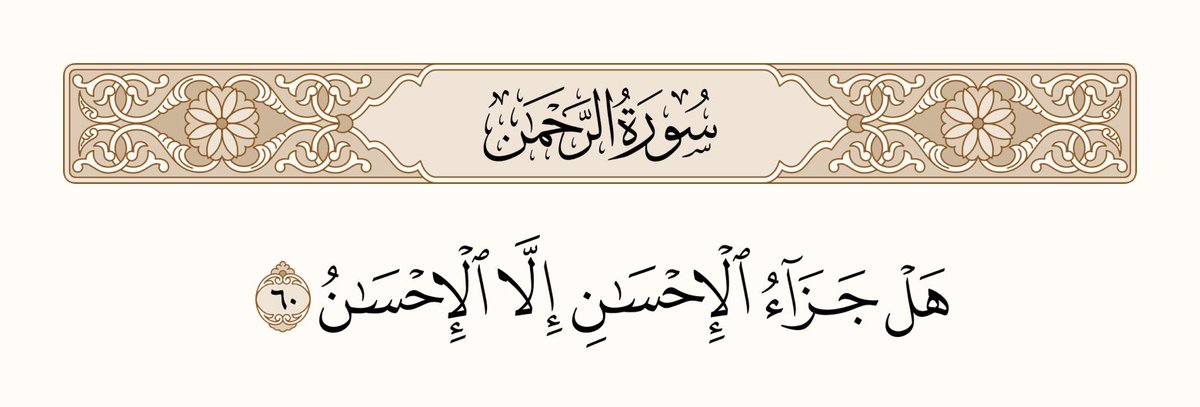 سُورَةُ الرَّحْمَٰن
هَلْ جَزَآءُ ٱلْإِحْسَٰنِ إِلَّا ٱلْإِحْسَٰنُ ٦٠